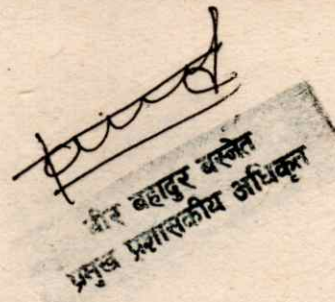 वीर बहादुर बस्नेत
प्रमुख प्रशासकीय अधिकृत